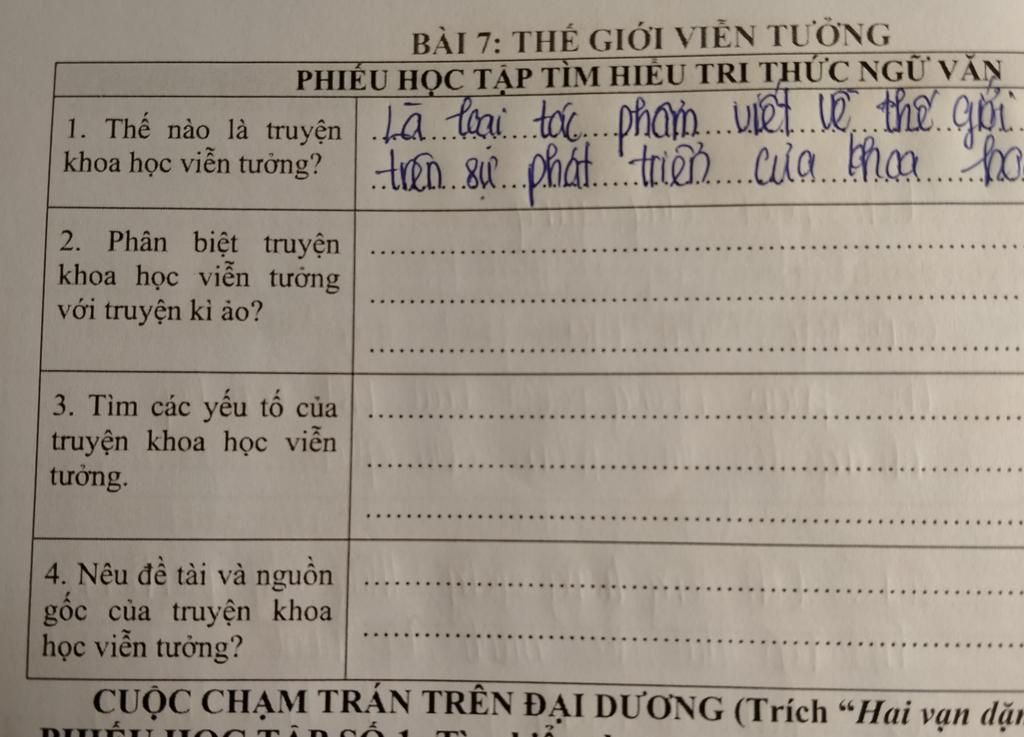 BÀI 7: THẾ GIỚI VIỄN TƯỞNG
PHIẾU HỌC TẬP TÌM HIỂU TRI THỨC NGỮ VĂN
1. Thế nào là truyện
khoa học viễn tưởng?
Là loại tác phẩm viết về thế giới
trên sự phát triển của khoa
2. Phân biệt truyện
khoa học viễn tưởng
với truyện kì ảo?
3. Tìm các yếu tố của
truyện khoa học viễn
tưởng.
4. Nêu đề tài và nguồn
gốc của truyện khoa
học viễn tưởng?
CUỘC CHẠM TRÁN TRÊN ĐẠI DƯƠNG (Trích “Hai vạn
PHIẾU HỌC TẬP SỐ 1